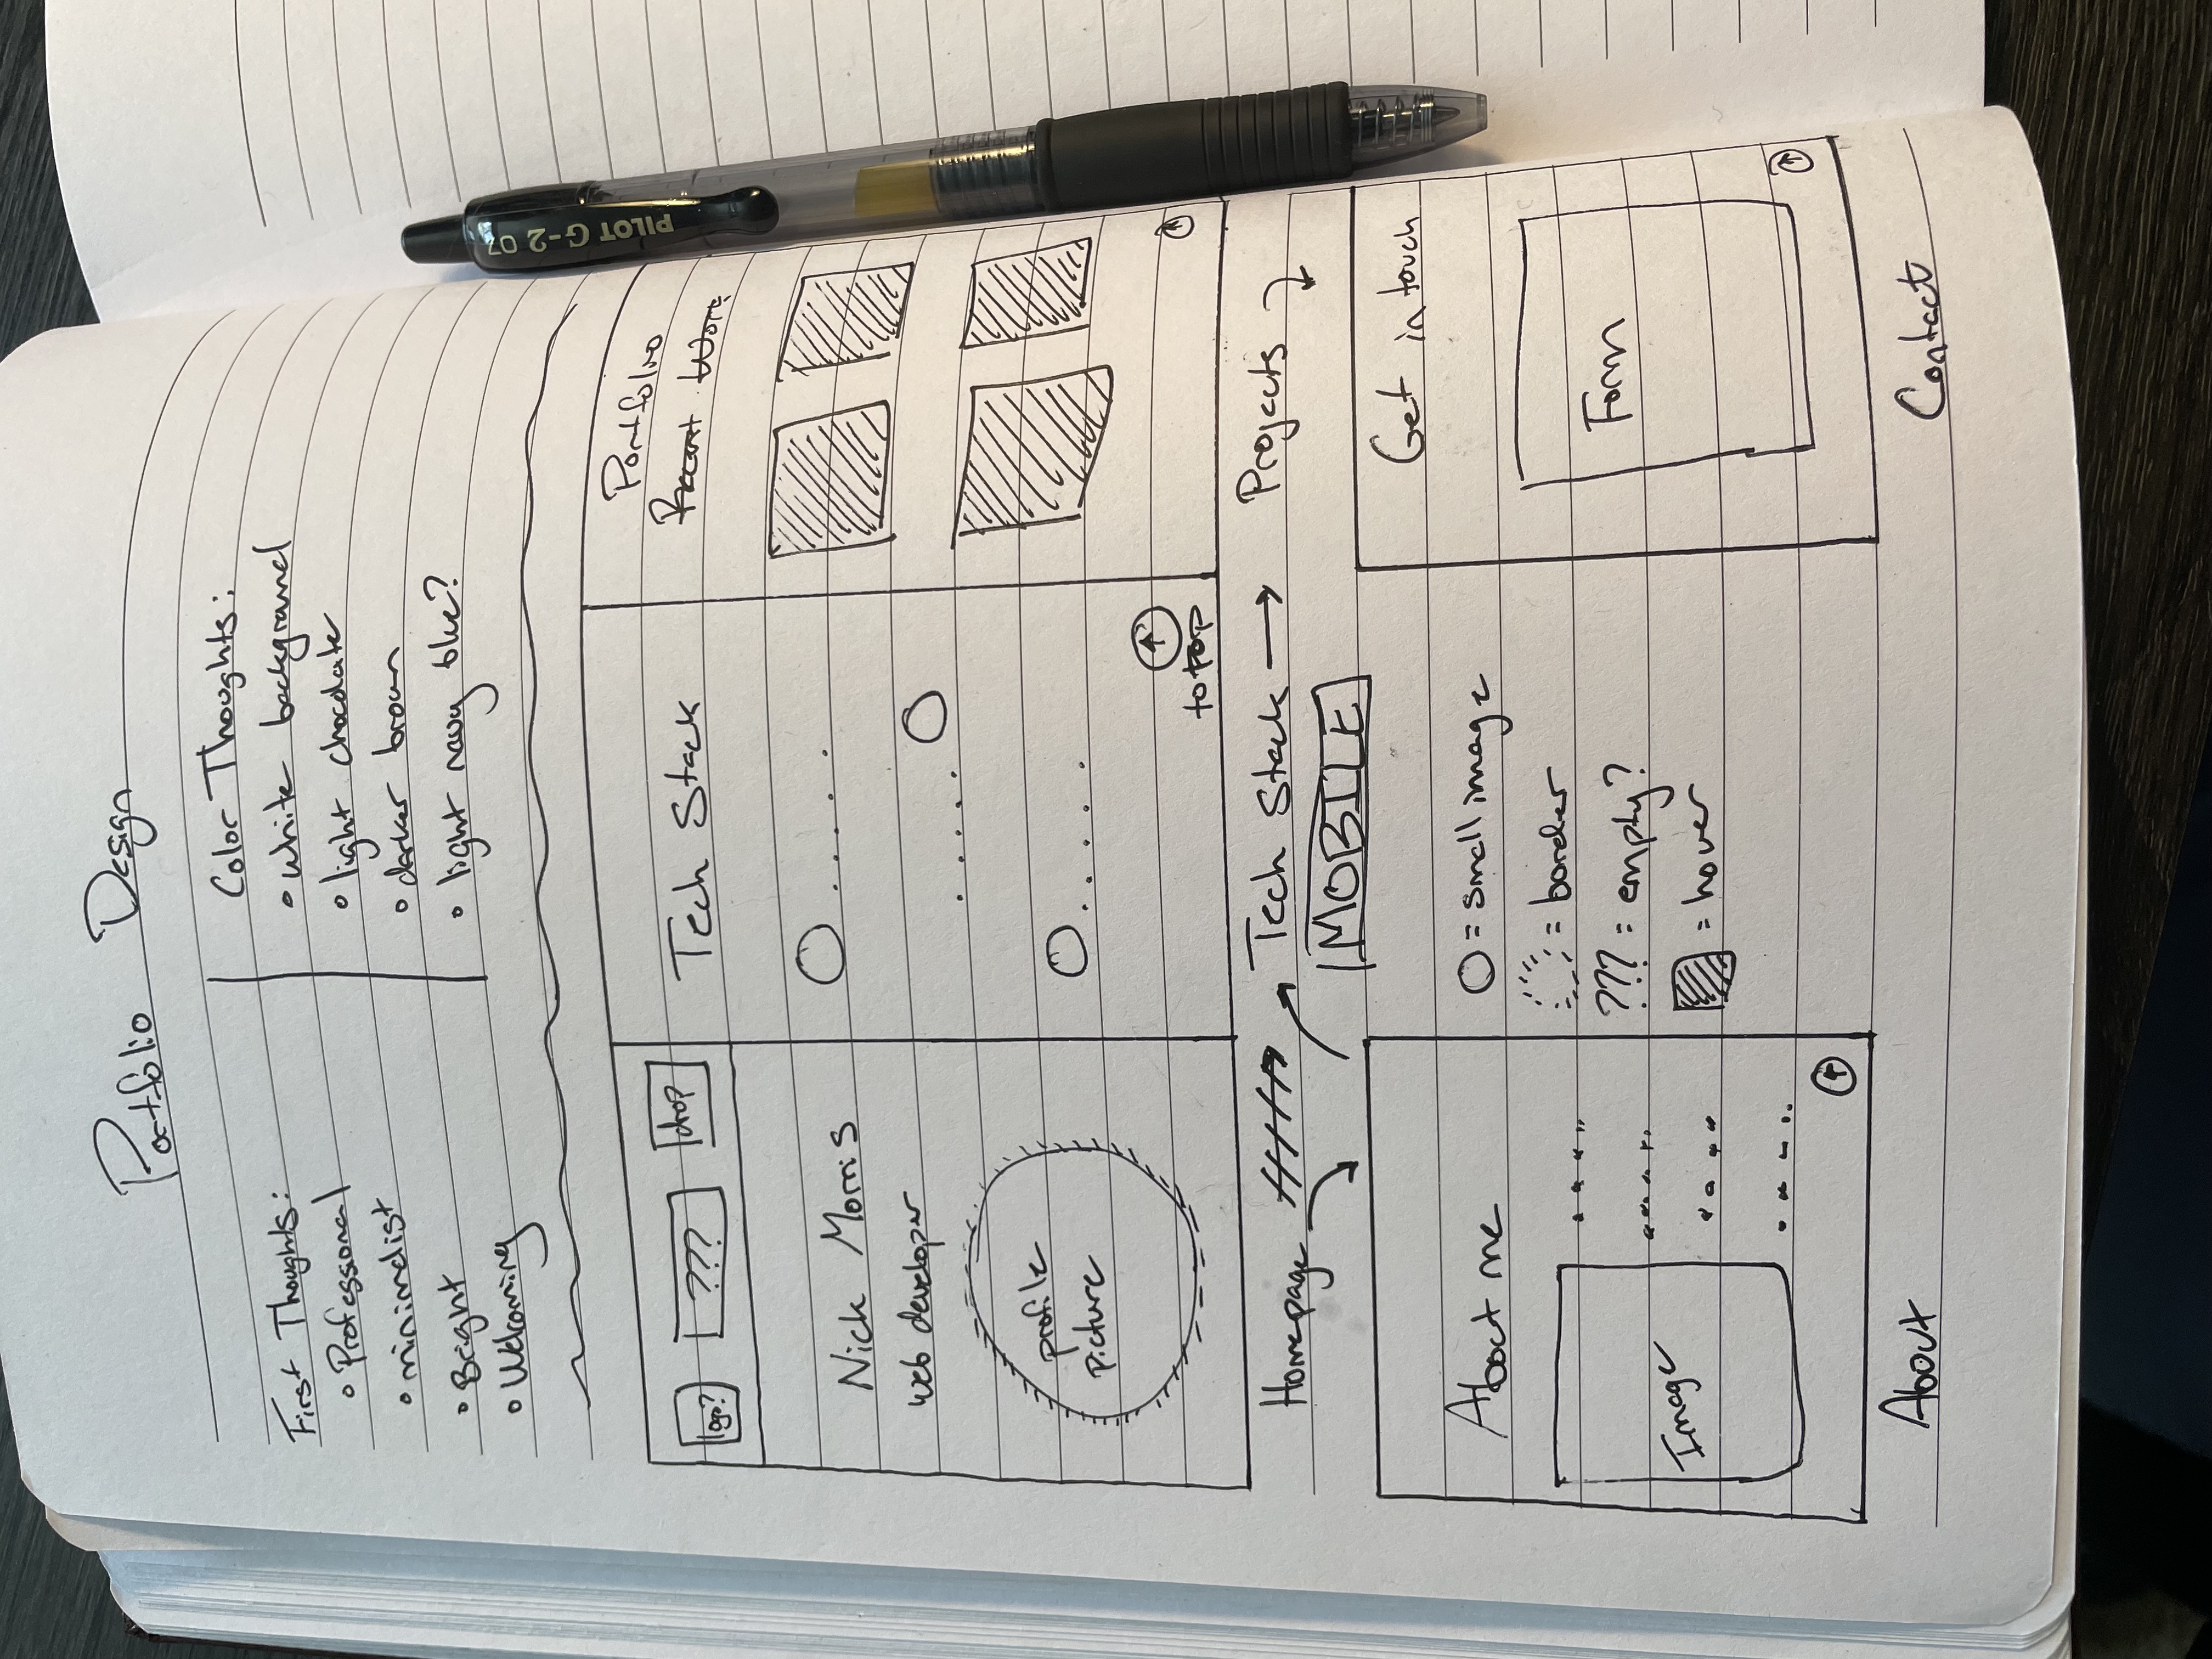 Portfolio Design
First Thoughts:
• Professional
• minimalist
• Bright
• Welcoming
Color Thoughts:
• white background
• light chocolate
• darker brown
• light navy blue?
logo?
???
drop
Nick Morris
web developer
profile
picture
Tech Stack
to top
Portfolio
Recent Work
Homepage
Tech Stack
Projects
MOBILE
About me
Image
About
= small image
= border
??? = empty?
= hover
Get in touch
Form
Contact
PILOT G-2 07